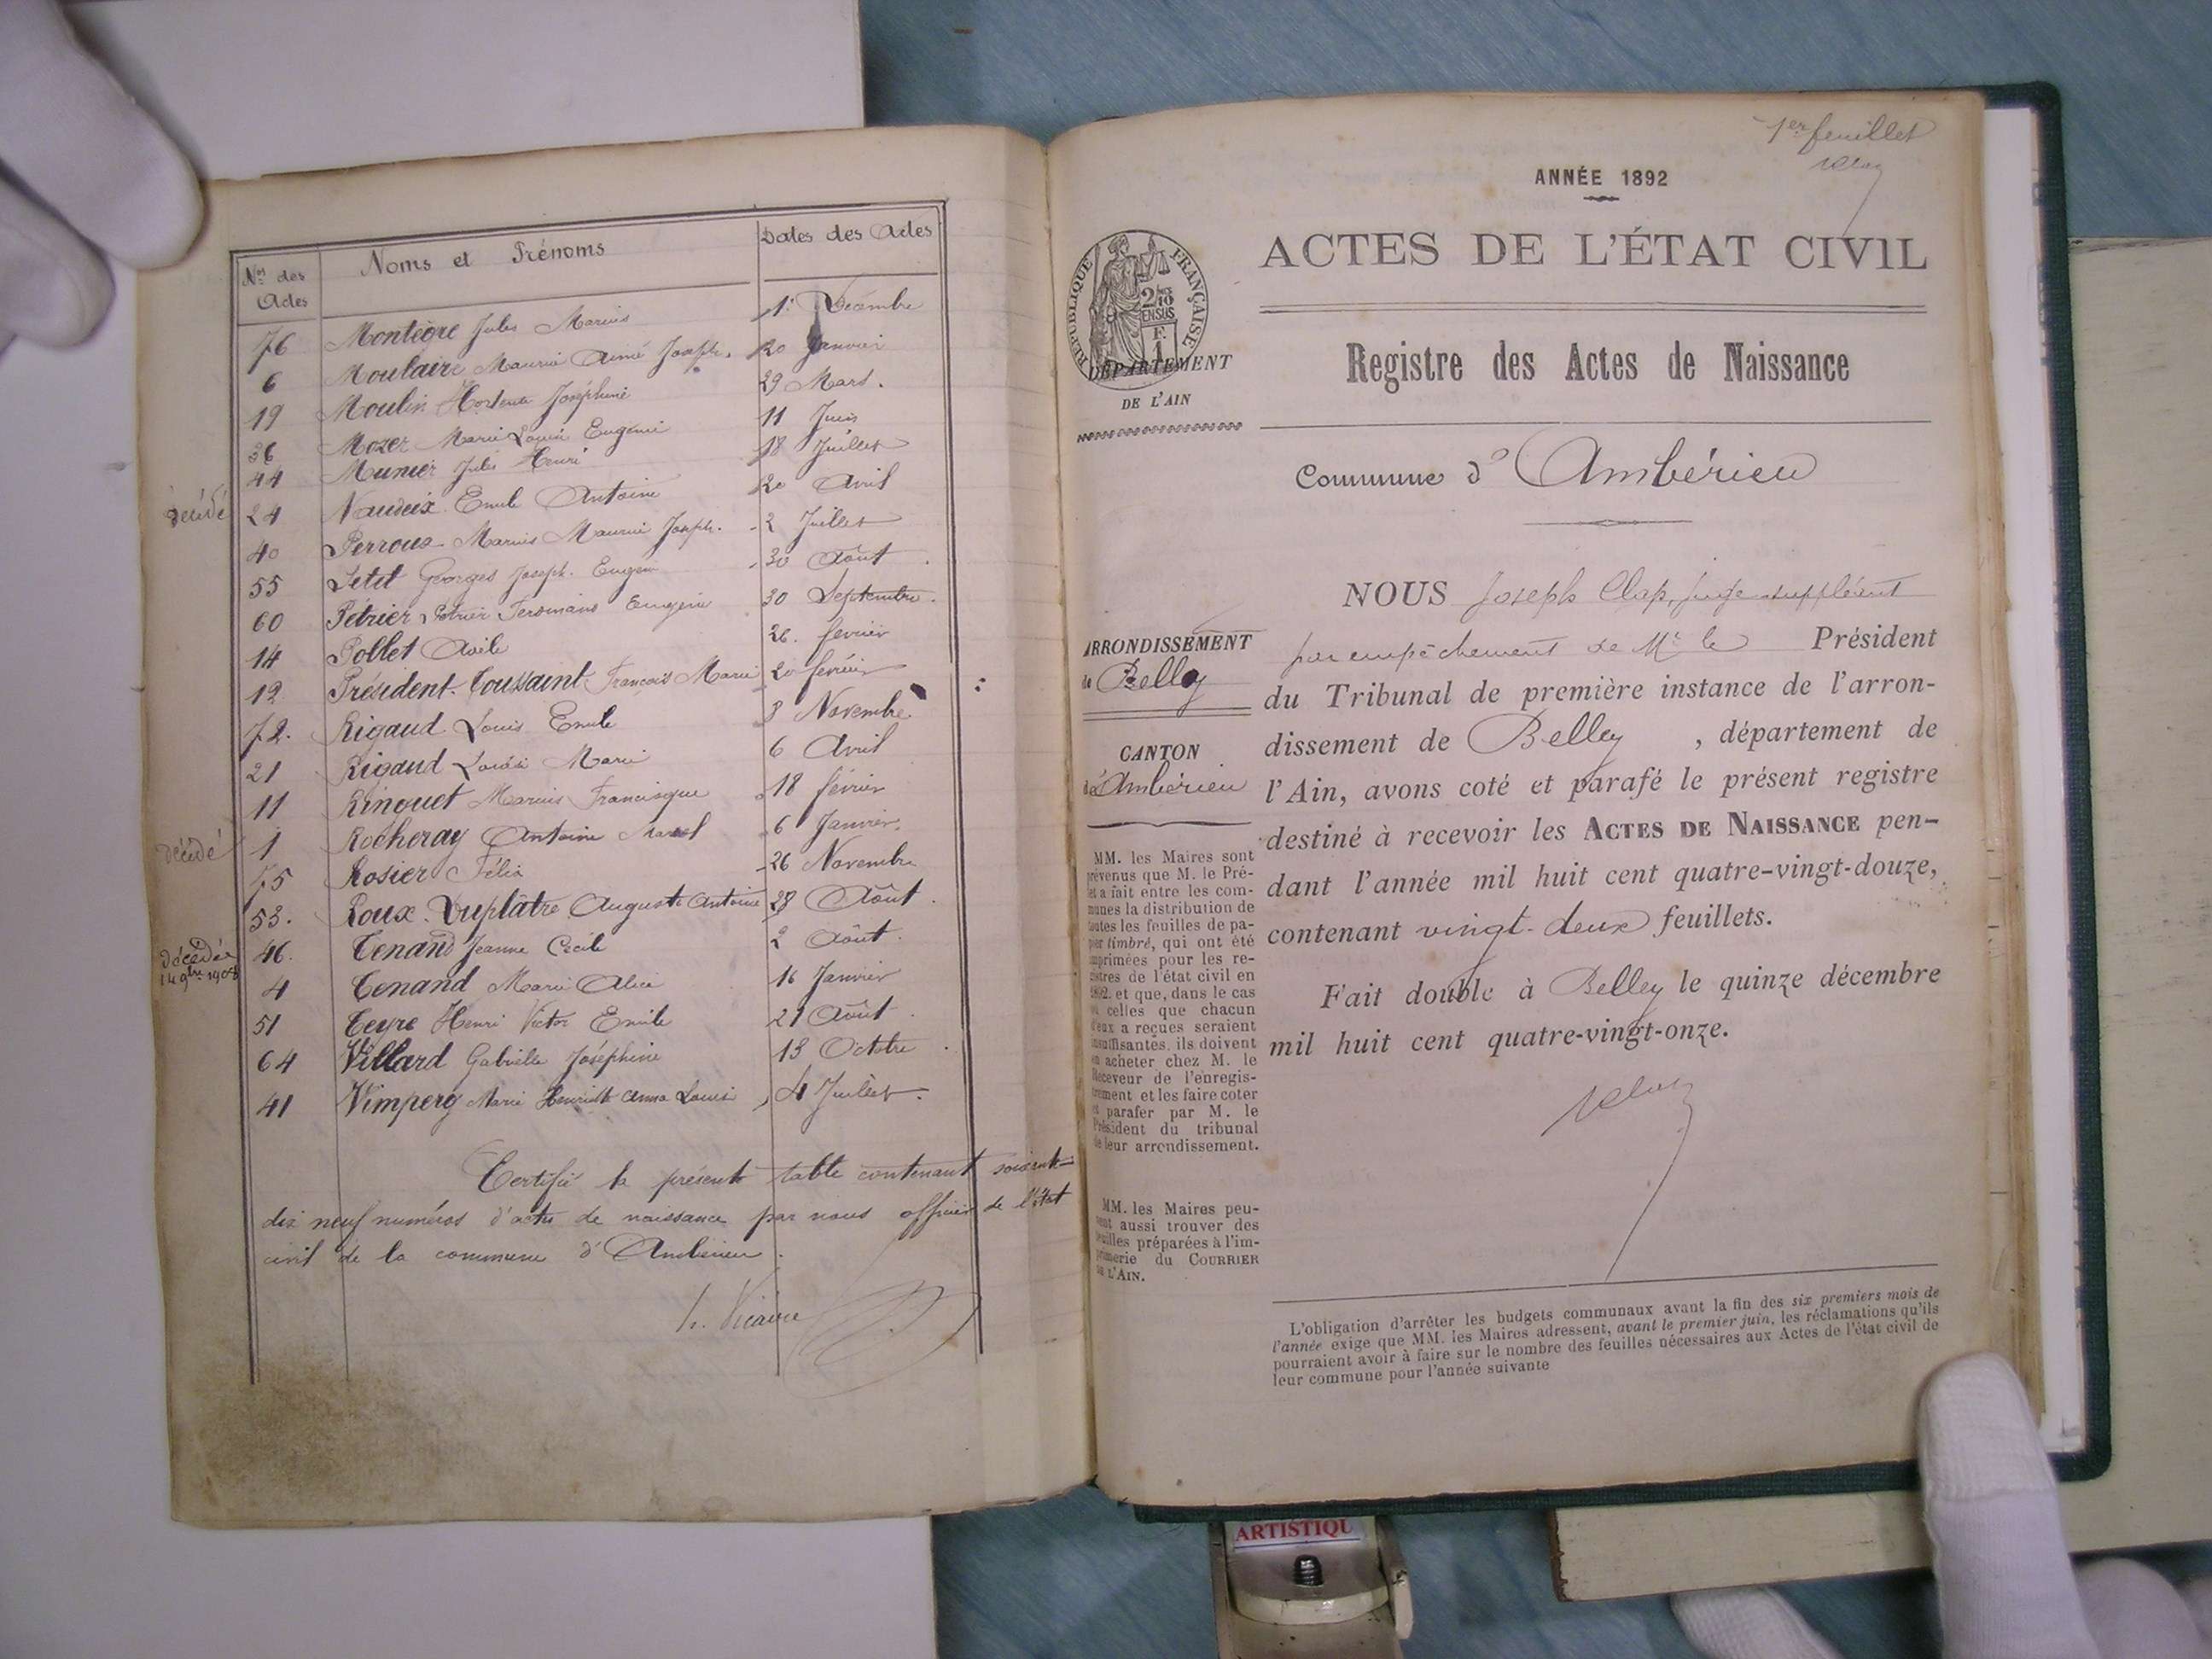 Nos des Actes Noms et Prénoms Dates des Actes
76 Montègre Jules Marius 1er Décembre
6 Moulaire Maurice Aimé Joseph. 20 Janvier
19 Moulin Hortense Joséphine 29 Mars.
36 Mozer Marie Louise Eugénie 11 Juin
44 Munier Jules Henri 18 Juillet
décédé 24 Naudeix Emile Antoine 20 Avril
40 Perroux Marius Maurice Joseph. 2 Juillet
55 Petit Georges Joseph. Eugène 30 Août
60 Pétrier Ferdinand Eugénie 30 Septembre.
14 Pollet 26. février
12 Président-Toussaint François Marie 20 février
72. Rigaud Louis Emile 3 Novembre
21 Rigaud Louise Marie 6 Avril
11 Rinquet Marius Francisque 18 février
décédé 1 Rocheray Antoine Marcel 6 Janvier
75 Rosier Félix 26 Novembre
53. Roux-Duplâtre Auguste Antoine 28 Août
décédée 14 9bre 1908 46. Tenand Jeanne Cécile 2 Août
4 Tenand Marie Alice 16 Janvier
51 Teyre Henri Victor Emile 21 Août
64 Villard Gabrielle Joséphine 13 Octobre
41 Vimperg Marie Henriette Anna Louise 4 Juillet.
Certifié la présente table contenant soixante
dix neuf numéros d'actes de naissance par nous officier de l'état
civil de la commune d'Ambérieu.
h. Vicaire
1er feuillet
Clap
ANNÉE 1892
ACTES DE L'ÉTAT CIVIL
RÉPUBLIQUE FRANÇAISE
2/10 EN SUS
F.
1
DÉPARTEMENT
DE L'AIN
Registre des Actes de Naissance
Commune d'Ambérieu
ARRONDISSEMENT
de Belley
CANTON
d'Ambérieu
MM. les Maires sont
prévenus que M. le Pré-
fet a fait entre les com-
munes la distribution de
toutes les feuilles de pa-
pier timbré, qui ont été
imprimées pour les re-
gistres de l'état civil en
1892, et que, dans le cas
où celles que chacun
d'eux a reçues seraient
insuffisantes, ils doivent
en acheter chez M. le
Receveur de l'enregis-
trement et les faire coter
et parafer par M. le
Président du tribunal
de leur arrondissement.
MM. les Maires peu-
vent aussi trouver des
feuilles préparées à l'im-
primerie du COURRIER
DE L'AIN.
NOUS Joseph Clap, juge suppléant
par empêchement de Mr le Président
du Tribunal de première instance de l'arron-
dissement de Belley, département de
l'Ain, avons coté et parafé le présent registre
destiné à recevoir les ACTES DE NAISSANCE pen-
dant l'année mil huit cent quatre-vingt-douze,
contenant vingt-deux feuillets.
Fait double à Belley le quinze décembre
mil huit cent quatre-vingt-onze.
Clap
L'obligation d'arrêter les budgets communaux avant la fin des six premiers mois de
l'année exige que MM. les Maires adressent, avant le premier juin, les réclamations qu'ils
pourraient avoir à faire sur le nombre des feuilles nécessaires aux Actes de l'état civil de
leur commune pour l'année suivante
ARTISTIQU